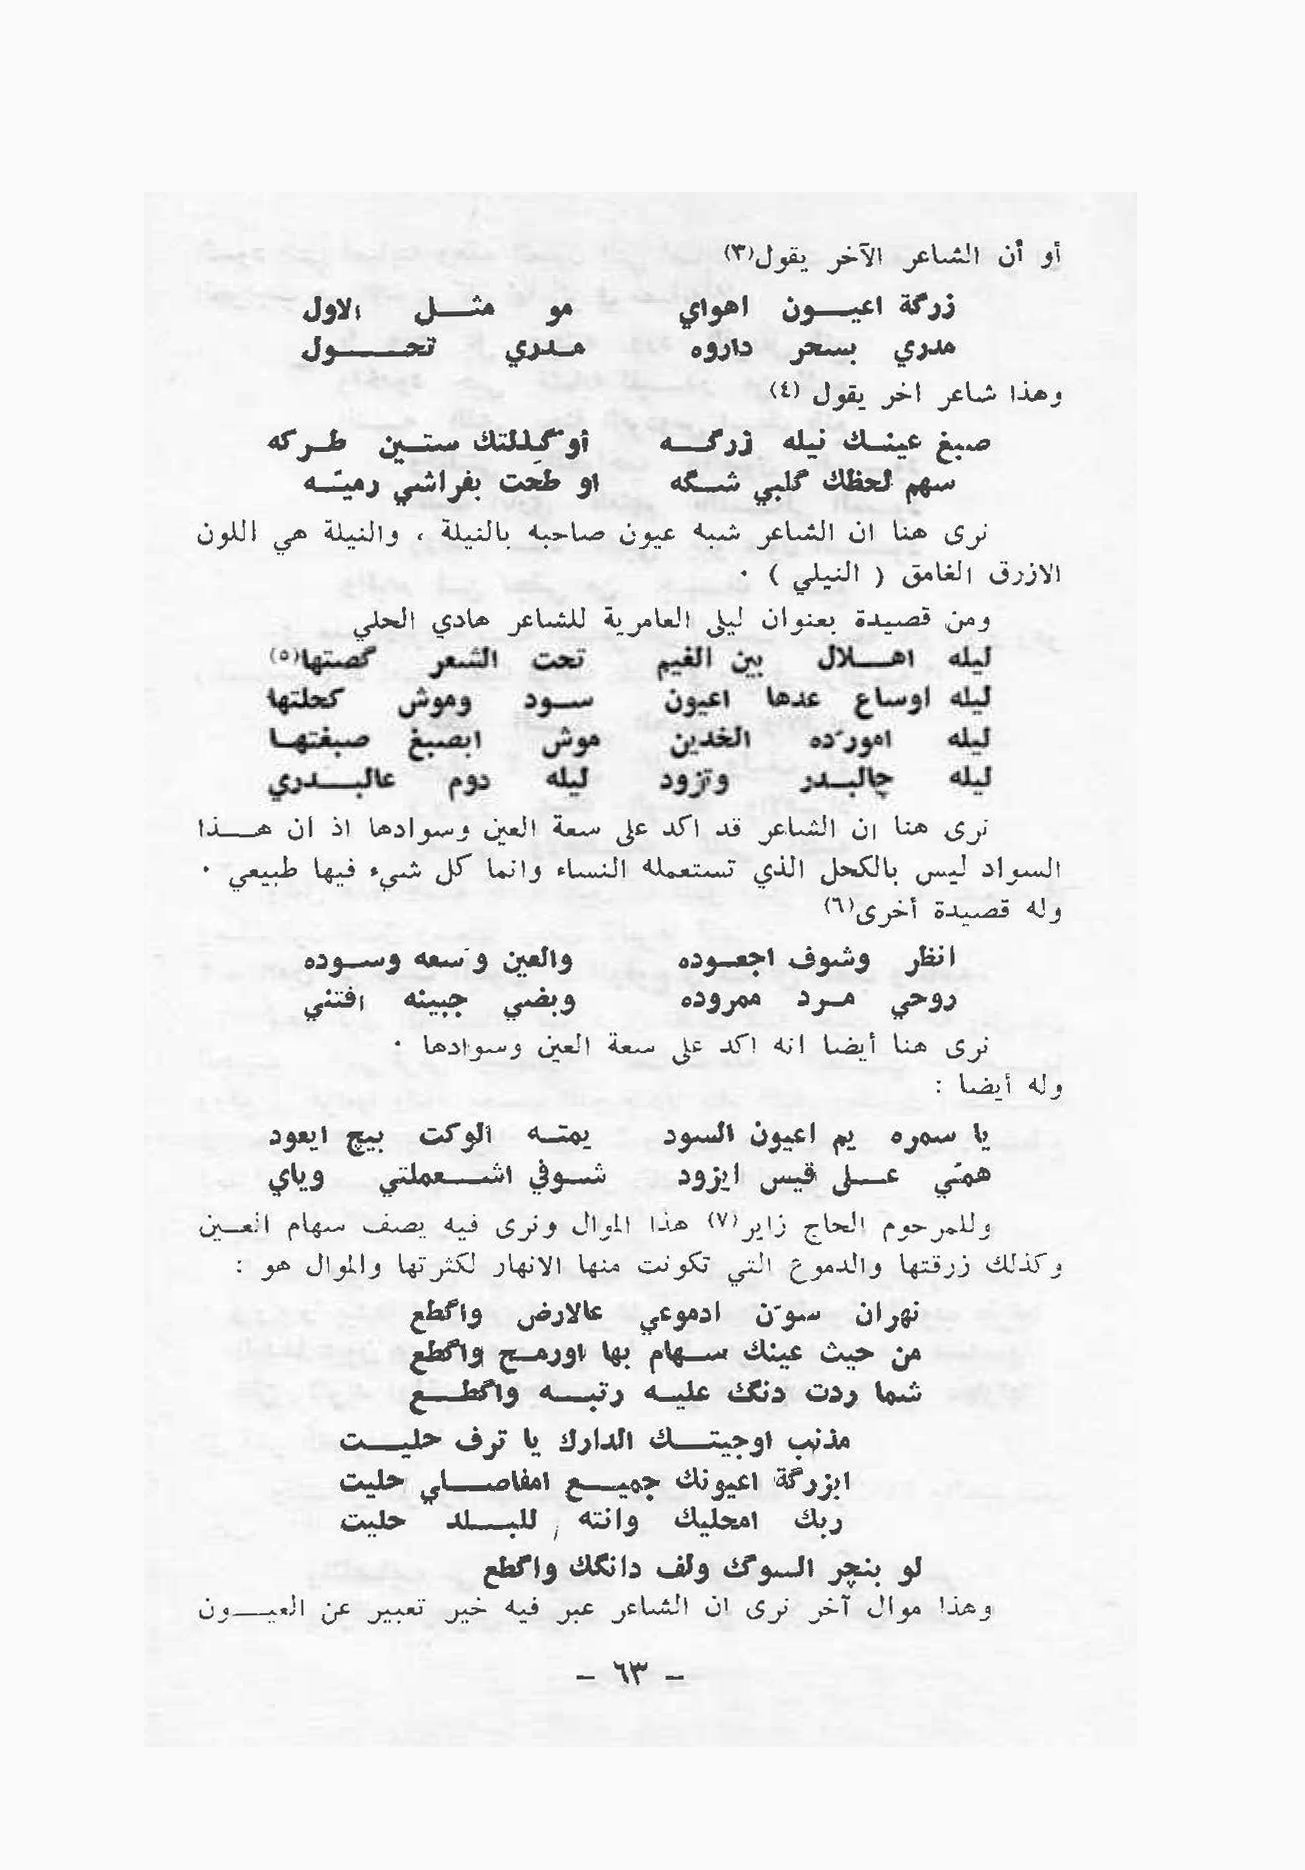 أو أن الشاعر الآخر يقول(٣)
زرگة اعيون اهواي مو مثل الاول
مدري بسحر داروه مدري تحول
وهذا شاعر اخر يقول (٤)
صبغ عينك نيله زرگه أو گذلتك ستين طرگه
سهم لحظك گلبي شگه او طحت بفراشي رميّه
نرى هنا ان الشاعر شبه عيون صاحبه بالنيلة ، والنيلة هي اللون
الازرق الغامق ( النيلي ) ٠
ومن قصيدة بعنوان ليلى العامرية للشاعر هادي الحلي
ليله اهلال بين الغيم تحت الشعر گصتها(٥)
ليله اوساع عدها اعيون سود وموش كحلتها
ليله امورّده الخدين موش ابصبغ صبغتها
ليله چالبدر وتزود ليله دوم عالبدري
نرى هنا ان الشاعر قد اكد على سعة العين وسوادها اذ ان هذا
السواد ليس بالكحل الذي تستعمله النساء وانما كل شيء فيها طبيعي ٠
وله قصيدة أخرى(٦)
انظر وشوف اجعوده والعين وسعه وسوده
روحي مرد ممروده وبضي جبينه افتني
نرى هنا أيضا انه اكد على سعة العين وسوادها ٠
وله أيضا :
يا سمره يم اعيون السود يمته الوكت بيچ ايعود
همّي على قيس ايزود شوفي اشعملتي وياي
وللمرحوم الحاج زاير(٧) هذا الموال ونرى فيه يصف سهام العين
وكذلك زرقتها والدموع التي تكونت منها الانهار لكثرتها والموال هو :
نهران سوّن ادموعي عالارض واگطع
من حيث عينك سهام بها اورمح واگطع
شما ردت دنگ عليه رتبه واگطع
مذنب اوجيتك الدارك يا ترف حليت
ابزرگة اعيونك جميع امفاصلي حليت
ربك امحليك وانته للبلد حليت
لو بنچر السوگ ولف دانگك واگطع
وهذا موال آخر نرى ان الشاعر عبر فيه خير تعبير عن العيون
– ٦٣ –